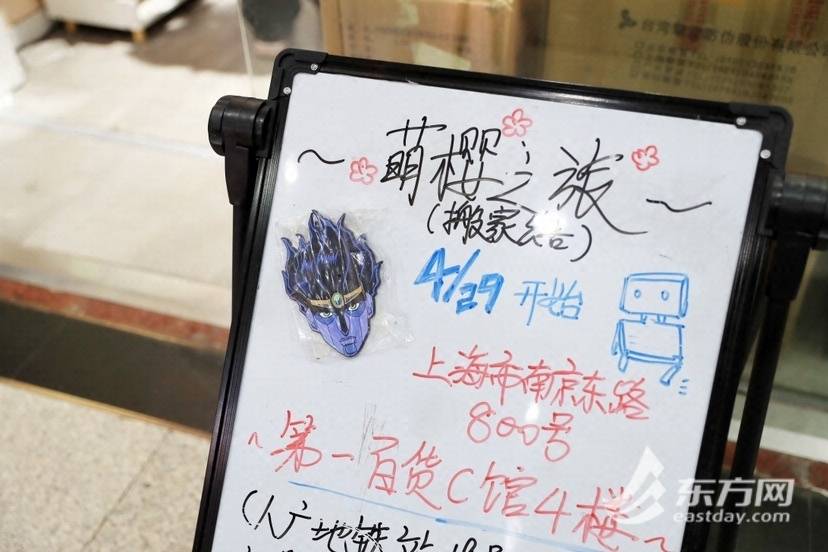 ~萌樱之旅~
(搬家公告)
4/29 开始
上海市南京东路
800号
~第一百货C馆4楼~
(人广地铁站19
东方网
eastday.com